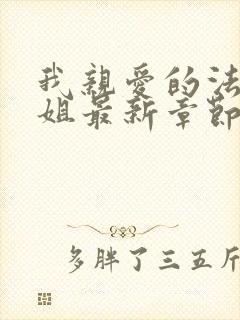 我親愛的法
姐最新章節
多胖了三五斤